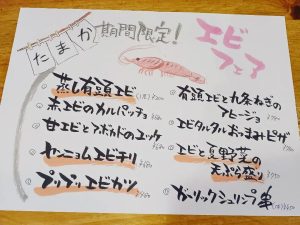 たまか
期間限定!
エビフェア
蒸し有頭エビ
赤エビのカルパッチョ
甘エビとアボカドのユッケ
ヤンニョムエビチリ
プリプリエビカツ
有頭エビと九条ねぎの
アヒージョ
エビタルタルおつまみピザ
エビと夏野菜の
天ぷら盛り
ガーリックシュリンプ串